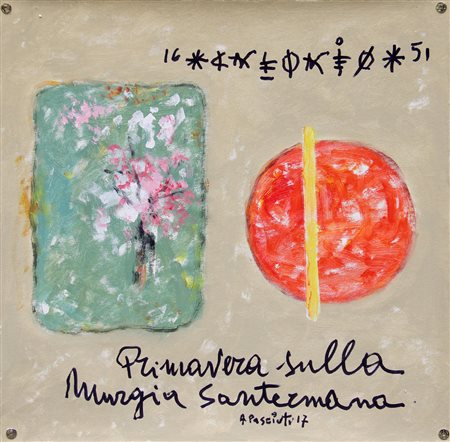 16 51
Primavera sulla
Murgia Santermana
A Pasciuti 17